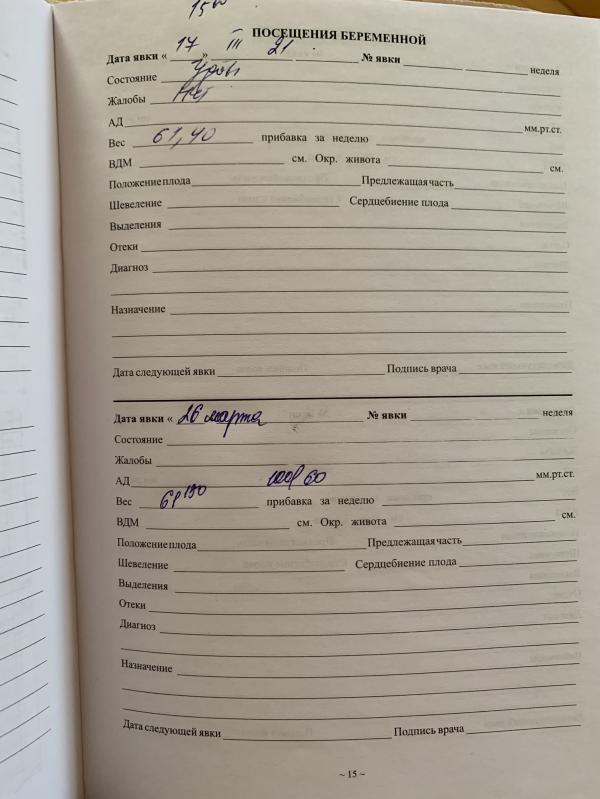 15
ПОСЕЩЕНИЯ БЕРЕМЕННОЙ
Дата явки « 17 » III 21 № явки неделя
Состояние Удовл
Жалобы Нет
АД мм.рт.ст.
Вес 61,40 прибавка за неделю
ВДМ см. Окр. живота см.
Положение плода Предлежащая часть
Шевеление Сердцебиение плода
Выделения
Отеки
Диагноз
Назначение
Дата следующей явки Подпись врача
Дата явки « 26 марта № явки неделя
Состояние
Жалобы
АД 100/60 мм.рт.ст.
Вес прибавка за неделю
ВДМ см. Окр. живота см.
Положение плода Предлежащая часть
Шевеление Сердцебиение плода
Выделения
Отеки
Диагноз
Назначение
Дата следующей явки Подпись врача
~ 15 ~